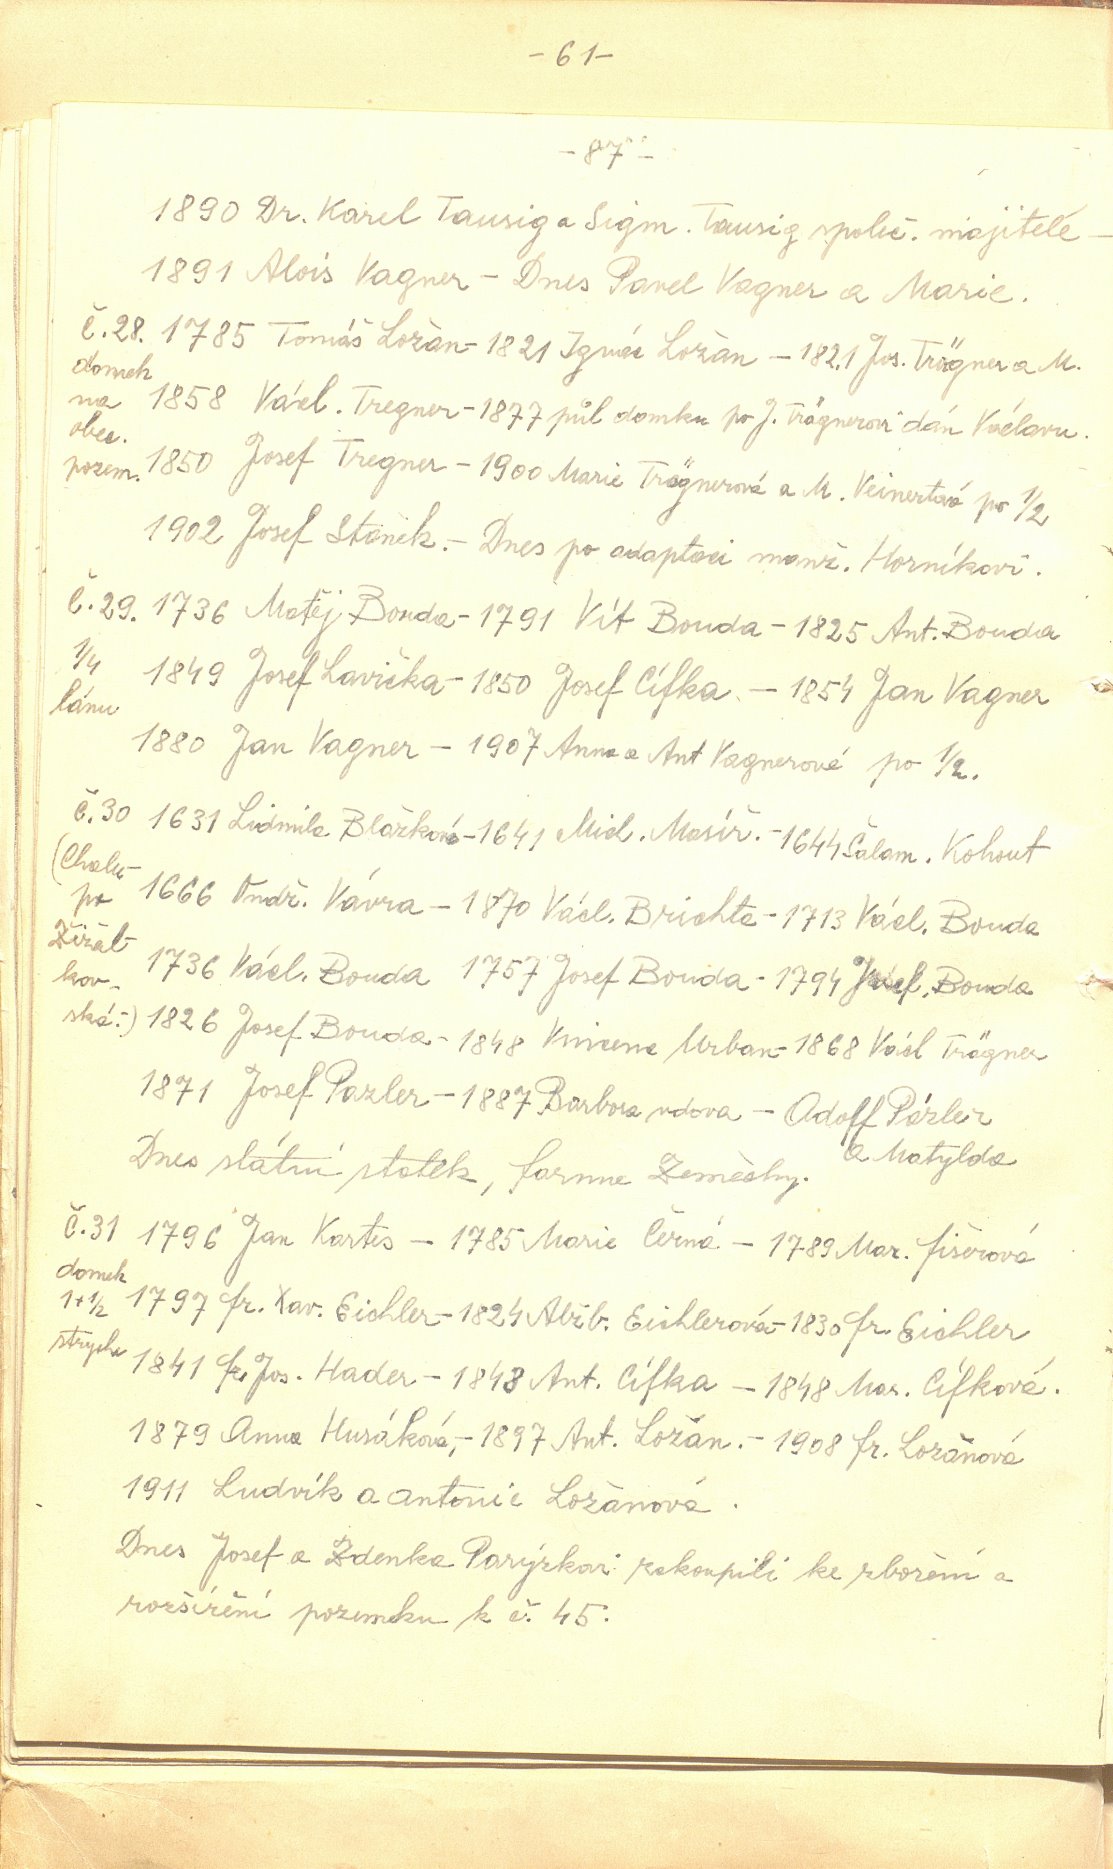 - 61 -
- 87 -
1890 Dr. Karel Tausig a Sigm. Tausig společ. majitelé -
1891 Alois Vagner - Dnes Pavel Vagner a Marie.
č.28. 1785 Tomáš Ložan - 1821 Ignác Ložan - 1821 Jos. Trägner a M.
domek
na 1858 Václ. Tregner - 1877 půl domku po J. Trägnerovi dán Václavu.
obec.
pozem. 1850 Josef Tregner - 1900 Marie Trägnerová a M. Veinertová po 1/2
1902 Josef Staněk. - Dnes po adaptaci manž. Horníkovi.
č.29. 1736 Matěj Bouda - 1791 Vít Bouda - 1825 Ant. Bouda
1/4 1849 Josef Lavička - 1850 Josef Cífka - 1854 Jan Vagner
lánu
1880 Jan Vagner - 1907 Anna a Ant Vagnerové po 1/2.
č.30 1631 Lidmila Blažková - 1641 Mich. Masíř. - 1644 Šalam. Kohout
(Chalu-
po 1666 Ondř. Vávra - 1870 Václ. Brichta - 1713 Václ. Bouda
Žižal-
kov- 1736 Václ. Bouda 1757 Josef Bouda - 1794 Josef. Bouda
ská:) 1826 Josef Bouda - 1848 Vincenc Urban - 1868 Václ Trägner
1871 Josef Pazler - 1887 Barbora vdova - Adolf Pázler
a Matylda
Dnes státní statek, farma Zeměchy.
č.31 1796 Jan Kartes - 1785 Marie Černá - 1789 Mar. fišerová
domek
1+1/2 1797 fr. Xav. Eichler - 1824 Alžb. Eichlerová - 1830 fr. Eichler
strycha 1841 fr. Jos. Hader - 1843 Ant. Cífka - 1848 Mar. Cífková.
1879 Anna Husáková, - 1897 Ant. Ložan. - 1908 fr. Ložanová
1911 Ludvík a Antonie Ložanová.
Dnes Josef a Zdenka Parýzkovi zakoupili ke zboření a
rozšíření pozemku k č. 45.